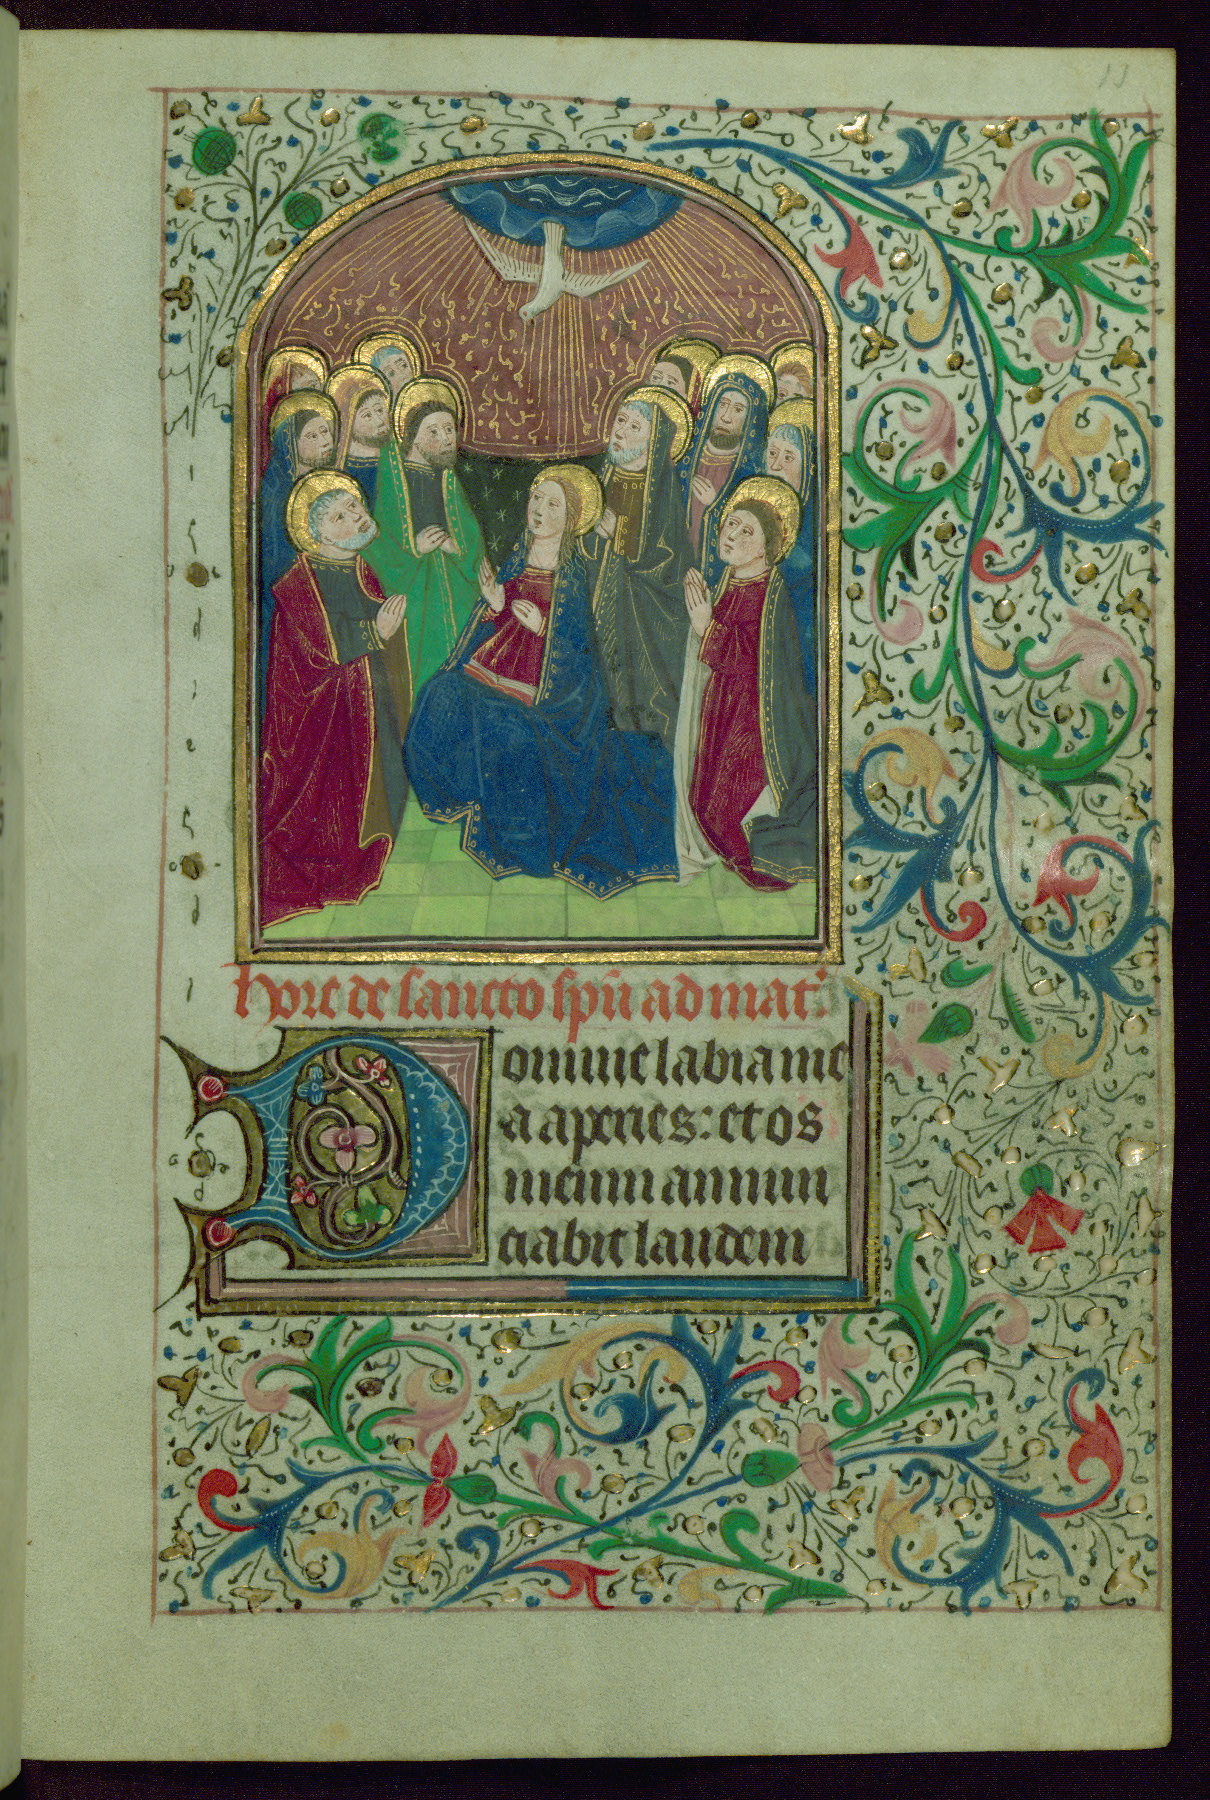 hore de sancto spũ ad mat᷑.
Domine labia me
a aperies: et os
meum annun
ciabit laudem